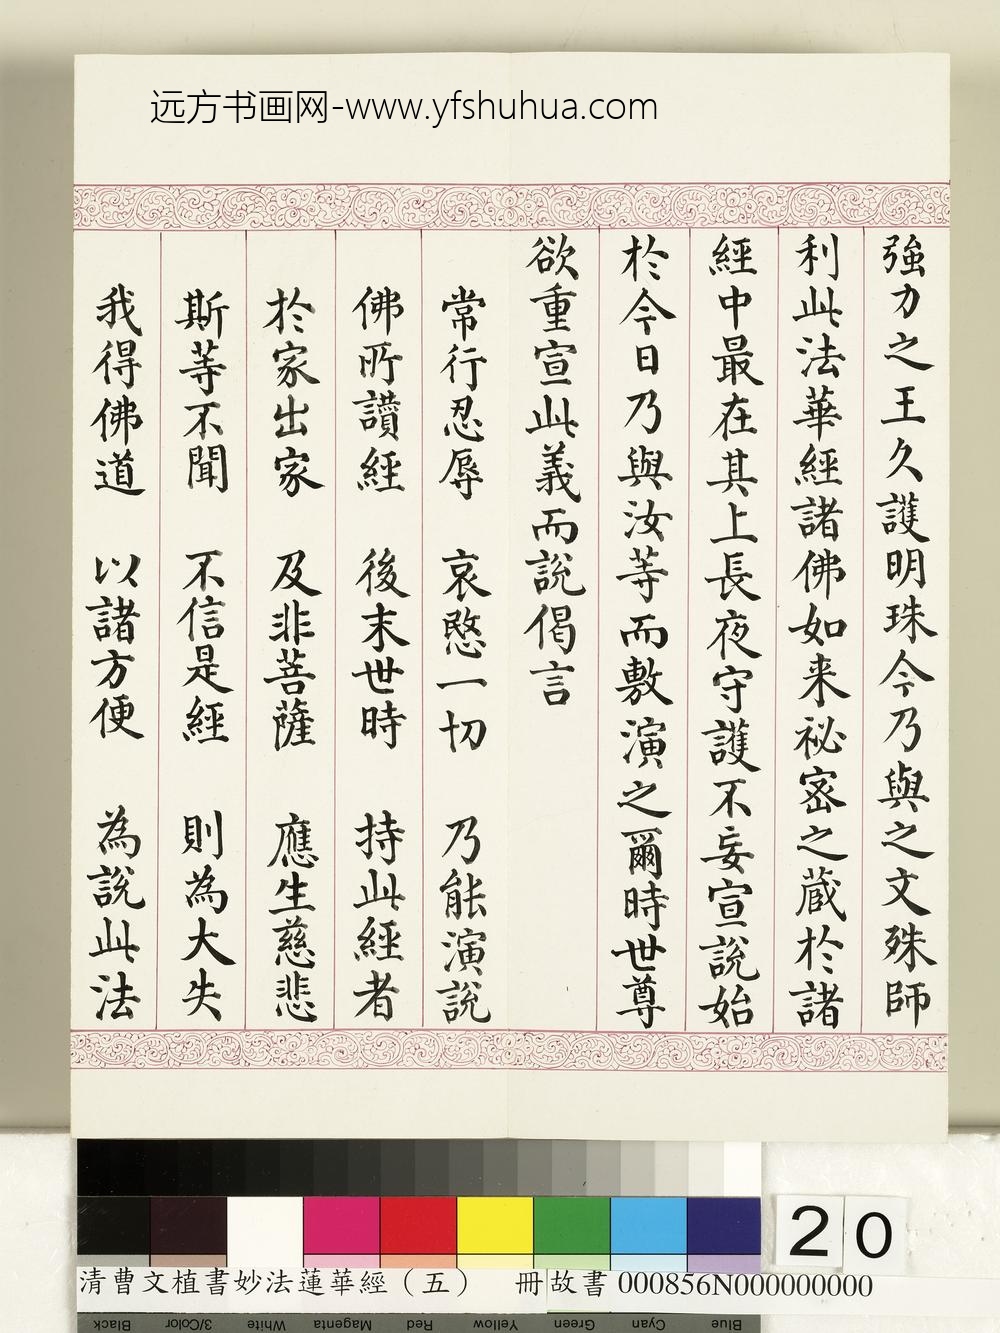 远方书画网-www.yfshuhua.com
強力之王久護明珠今乃與之文殊師
利此法華經諸佛如来祕密之蔵於諸
經中最在其上長夜守護不妄宣說始
於今日乃與汝等而敷演之爾時世尊
欲重宣此義而說偈言
常行忍辱 哀愍一切 乃能演說
佛所讚經 後末世時 持此經者
於家出家 及非菩薩 應生慈悲
斯等不聞 不信是經 則為大失
我得佛道 以諸方便 為說此法
20
清曹文植書妙法蓮華經（五） 冊 故書 000856N000000000
Black 3/Color White Magenta Red Yellow Green Cyan Blue